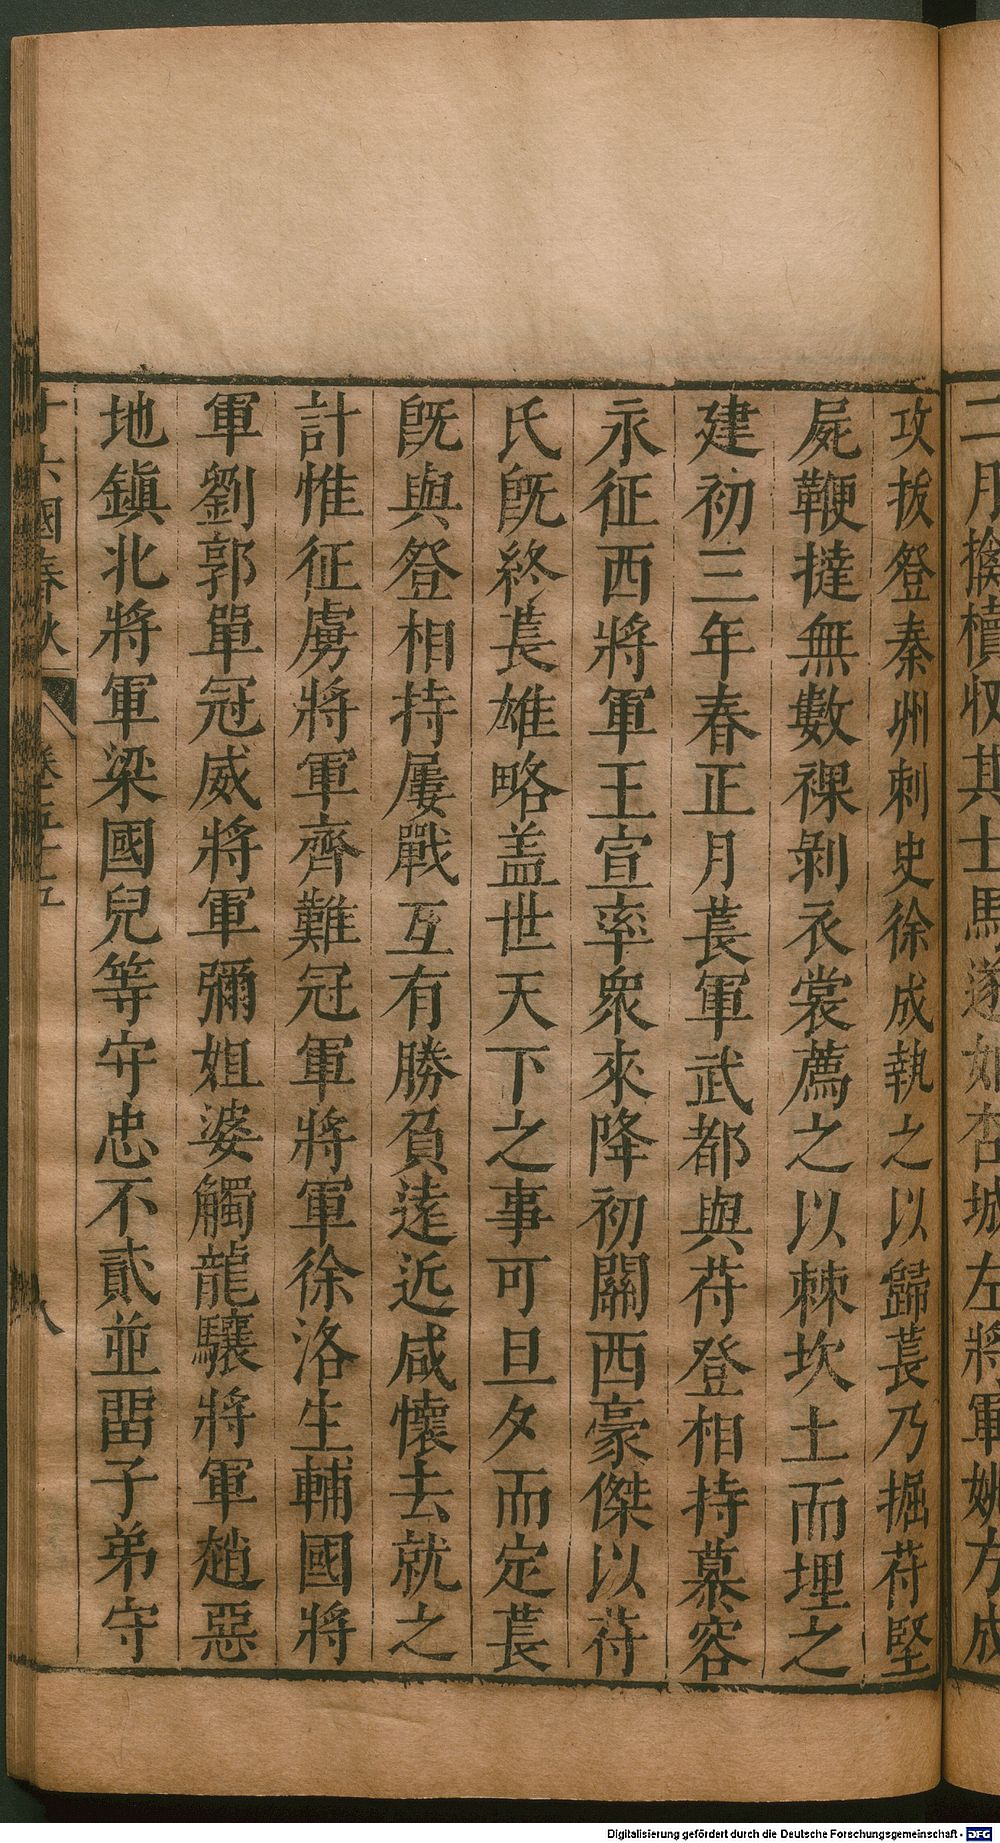 二月擒犢收其士馬遂如杏城左將軍姚方成
攻拔登秦州刺史徐成執之以歸萇乃掘苻堅
屍鞭撻無數裸剝衣裳薦之以棘坎土而埋之
建初三年春正月萇軍武都與苻登相持慕容
永征西將軍王宣率衆來降初關西豪傑以苻
氏旣終萇雄略盖世天下之事可旦夕而定萇
旣與登相持屢戰互有勝負遠近咸懷去就之
計惟征虜將軍齊難冠軍將軍徐洛生輔國將
軍劉郭單冠威將軍彌姐婆觸龍驤將軍趙惡
地鎭北將軍梁國兒等守忠不貳並畱子弟守
十六國春秋 卷五十五 八
Digitalisierung gefördert durch die Deutsche Forschungsgemeinschaft - DFG